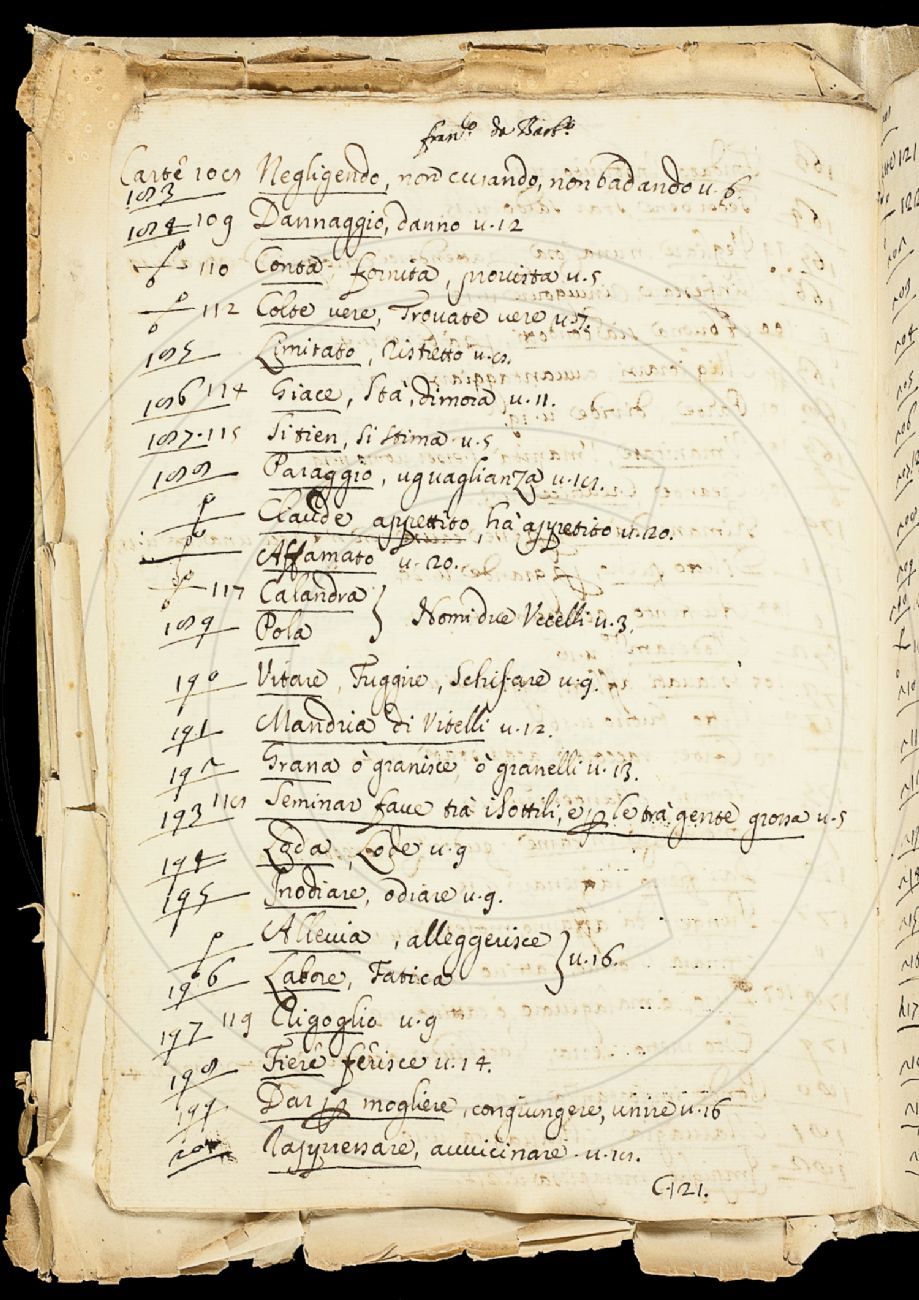 Franc.º da Barb.º
Carte 108 Negligendo, non curando, non badando v. 6.
183
184 109 Dannaggio, danno v. 12
110 Conta fornita, provista v. 5
112 Colte vere, Trovate vere v. 7.
185 Limitato, Ristretto v. 8.
186 114 Giace, Stà, dimora v. 11.
187. 115 Si tien, si stima v. 5
188 Paraggio, uguaglianza v. 18.
Claude appettito, hà appetito v. 20.
Affamato v. 20.
117 Calandra
189 Pola } Nomi due Vccelli v. 3.
190 Vitare, Fuggire, Schifare v. 9.
191 Mandria di Vitelli v. 12.
192 Grana ò granisce, ò granelli v. 13.
193 118 Seminar faue trà i Sottili, e p le trà gente grossa v. 5
194 Loda, Lode v. 9
195 Inodiare, odiare v. 9.
Alleuia, alleggerisce } v. 16.
196 Labore, Fatica
197 119 Rigoglio v. 9
198 Fiere ferisce v. 14.
199 Dar p mogliere, congiungere, unire v. 16
200 Rappressare, auuicinare v. 18.
C. 121.